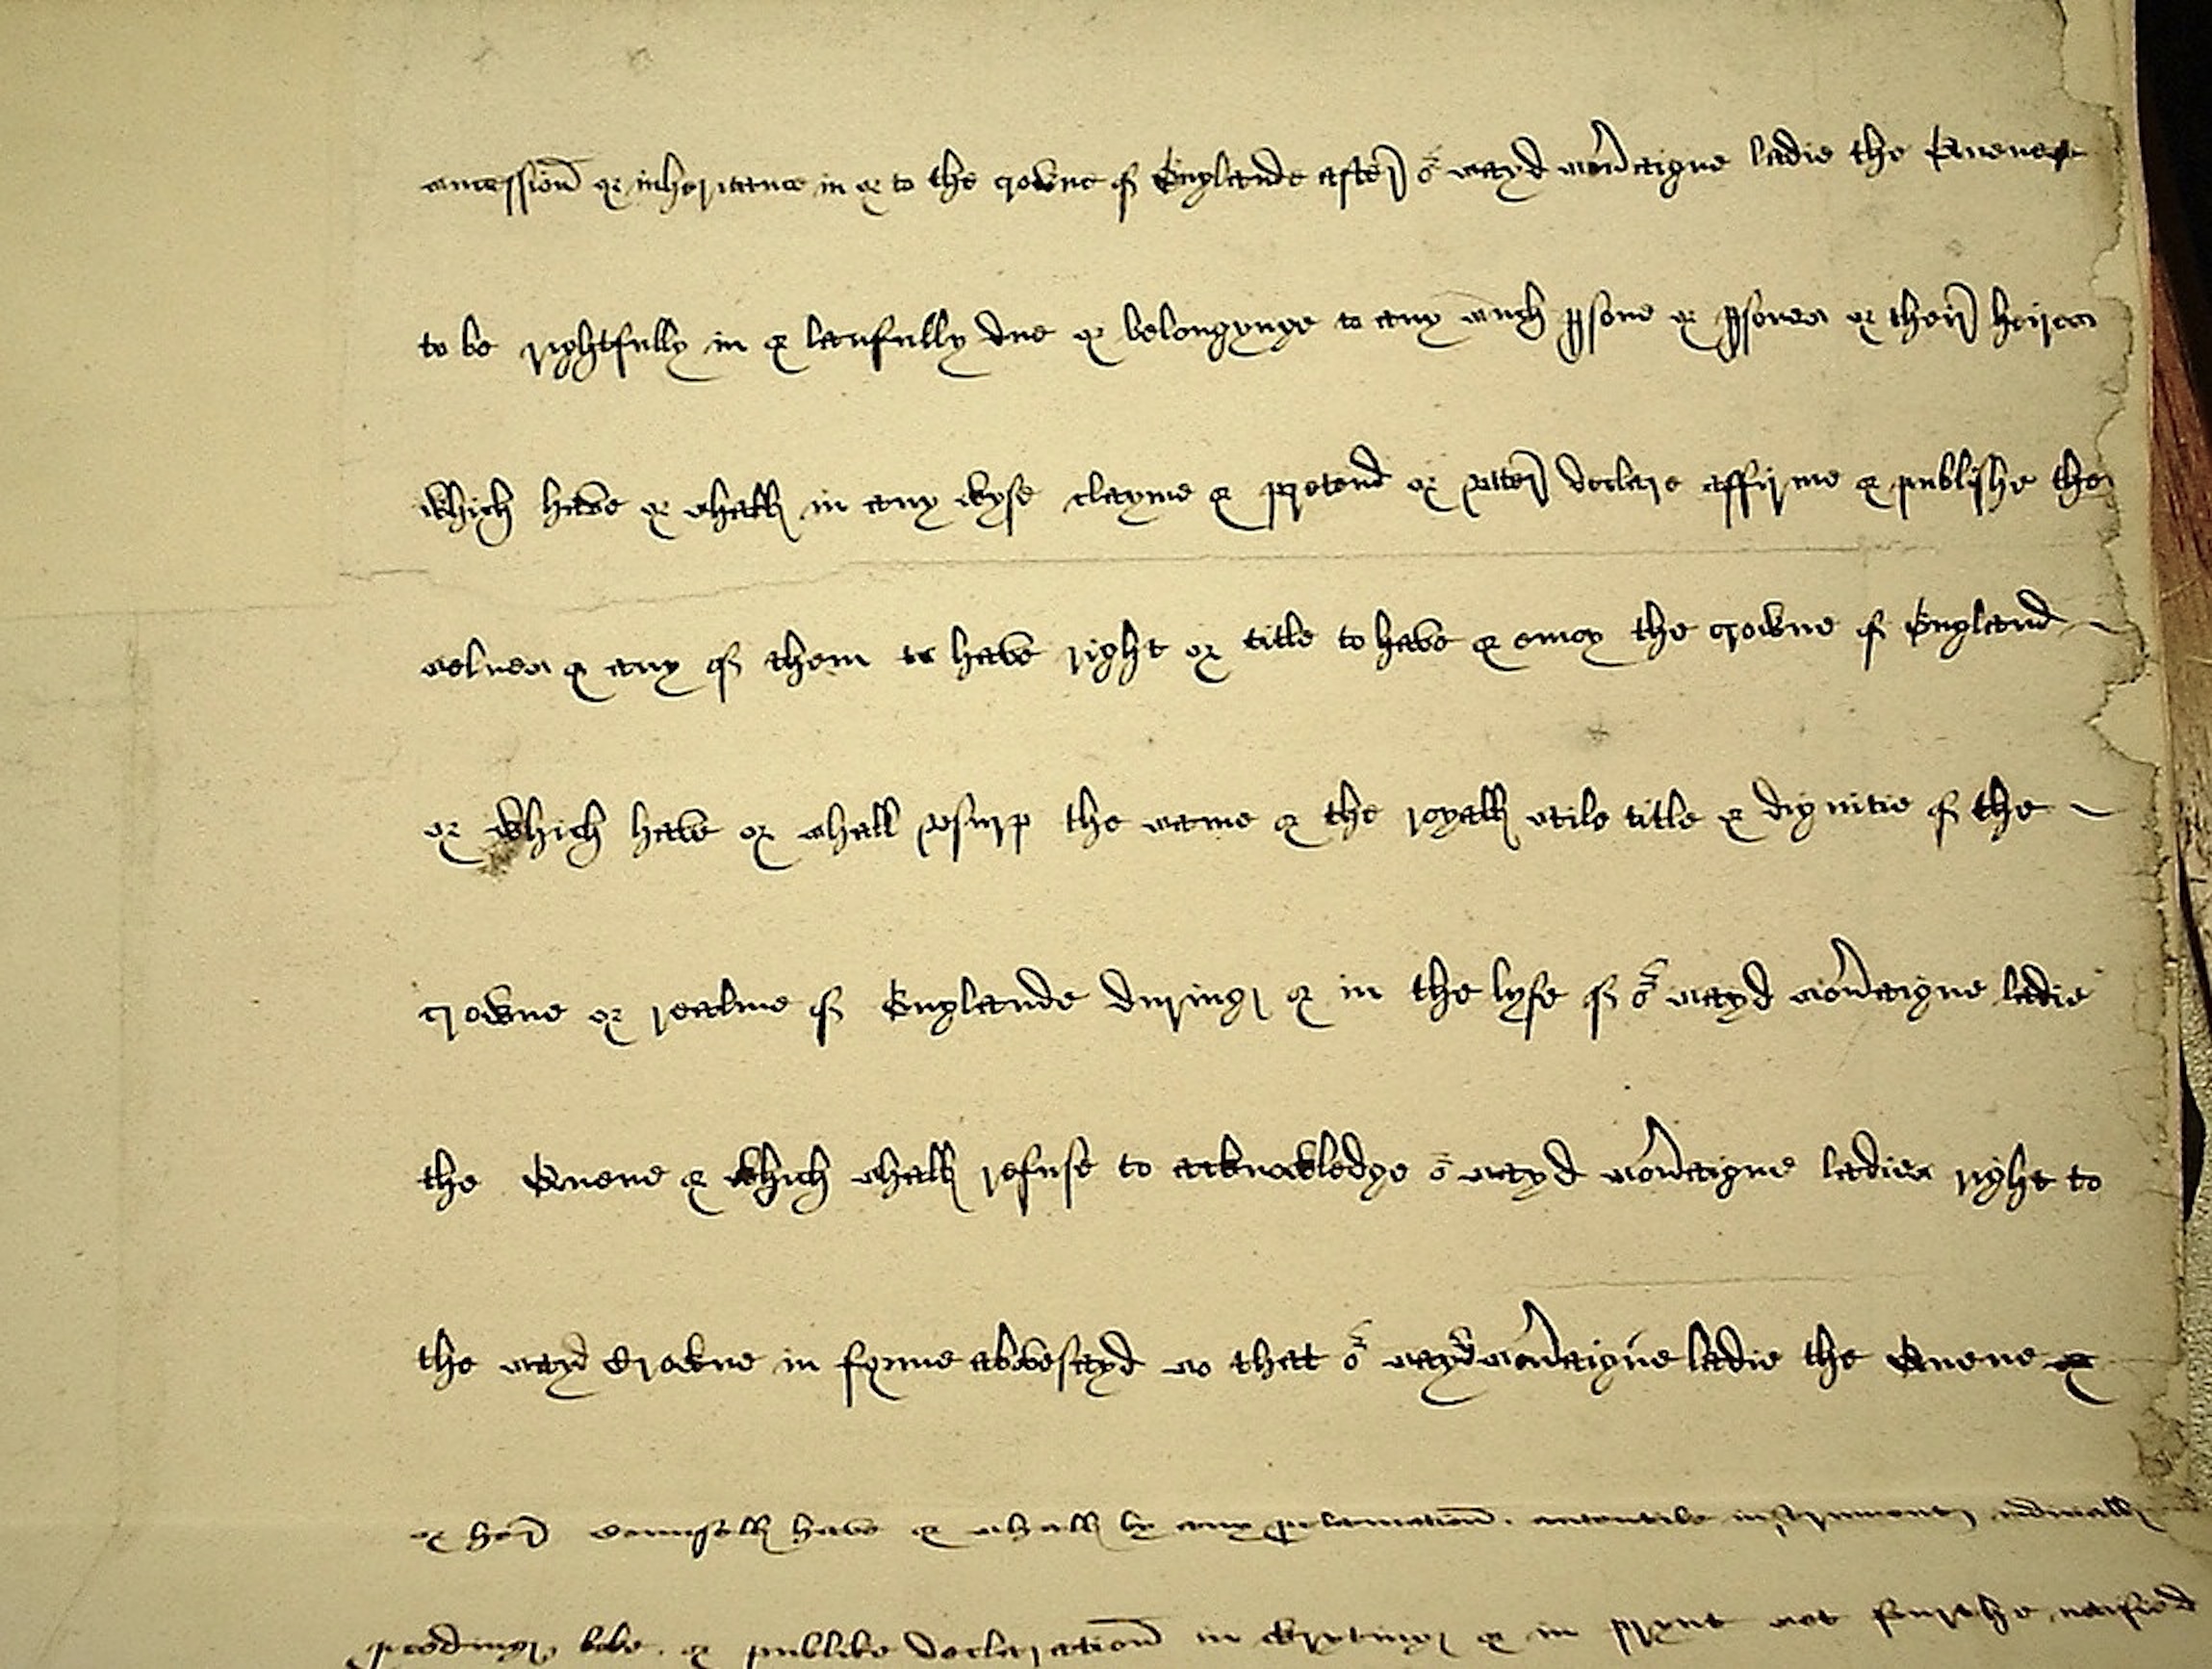 succession or inheritance in or to the crowne of Englande after oʳ sayd sov'aigne ladie the Quenes
to be rightfully in & laufully due or belongynge to any such psone or psones or their heires
which have or shall in any wyse clayme & pretend or vtter declare affirme & publishe the
selves & any of them to have right or title to have & enioy the crowne of England
or which have or shall vsurp the same & the royall stile title & dignitie of the
crowne or realme of Englande during & in the lyfe of oʳ sayd sov'aigne ladie
the Quene & which shall refuse to acknowledge oʳ sayd sov'aigne ladies right to
the sayd Crowne in forme abovesayd so that oʳ sayd sov'aigne ladie the Quene
or her counsell have & shall by any pclamation. autentike instrument iudiciall
pceding, boke. & publike declaration in wryting & in prynt set fourthe